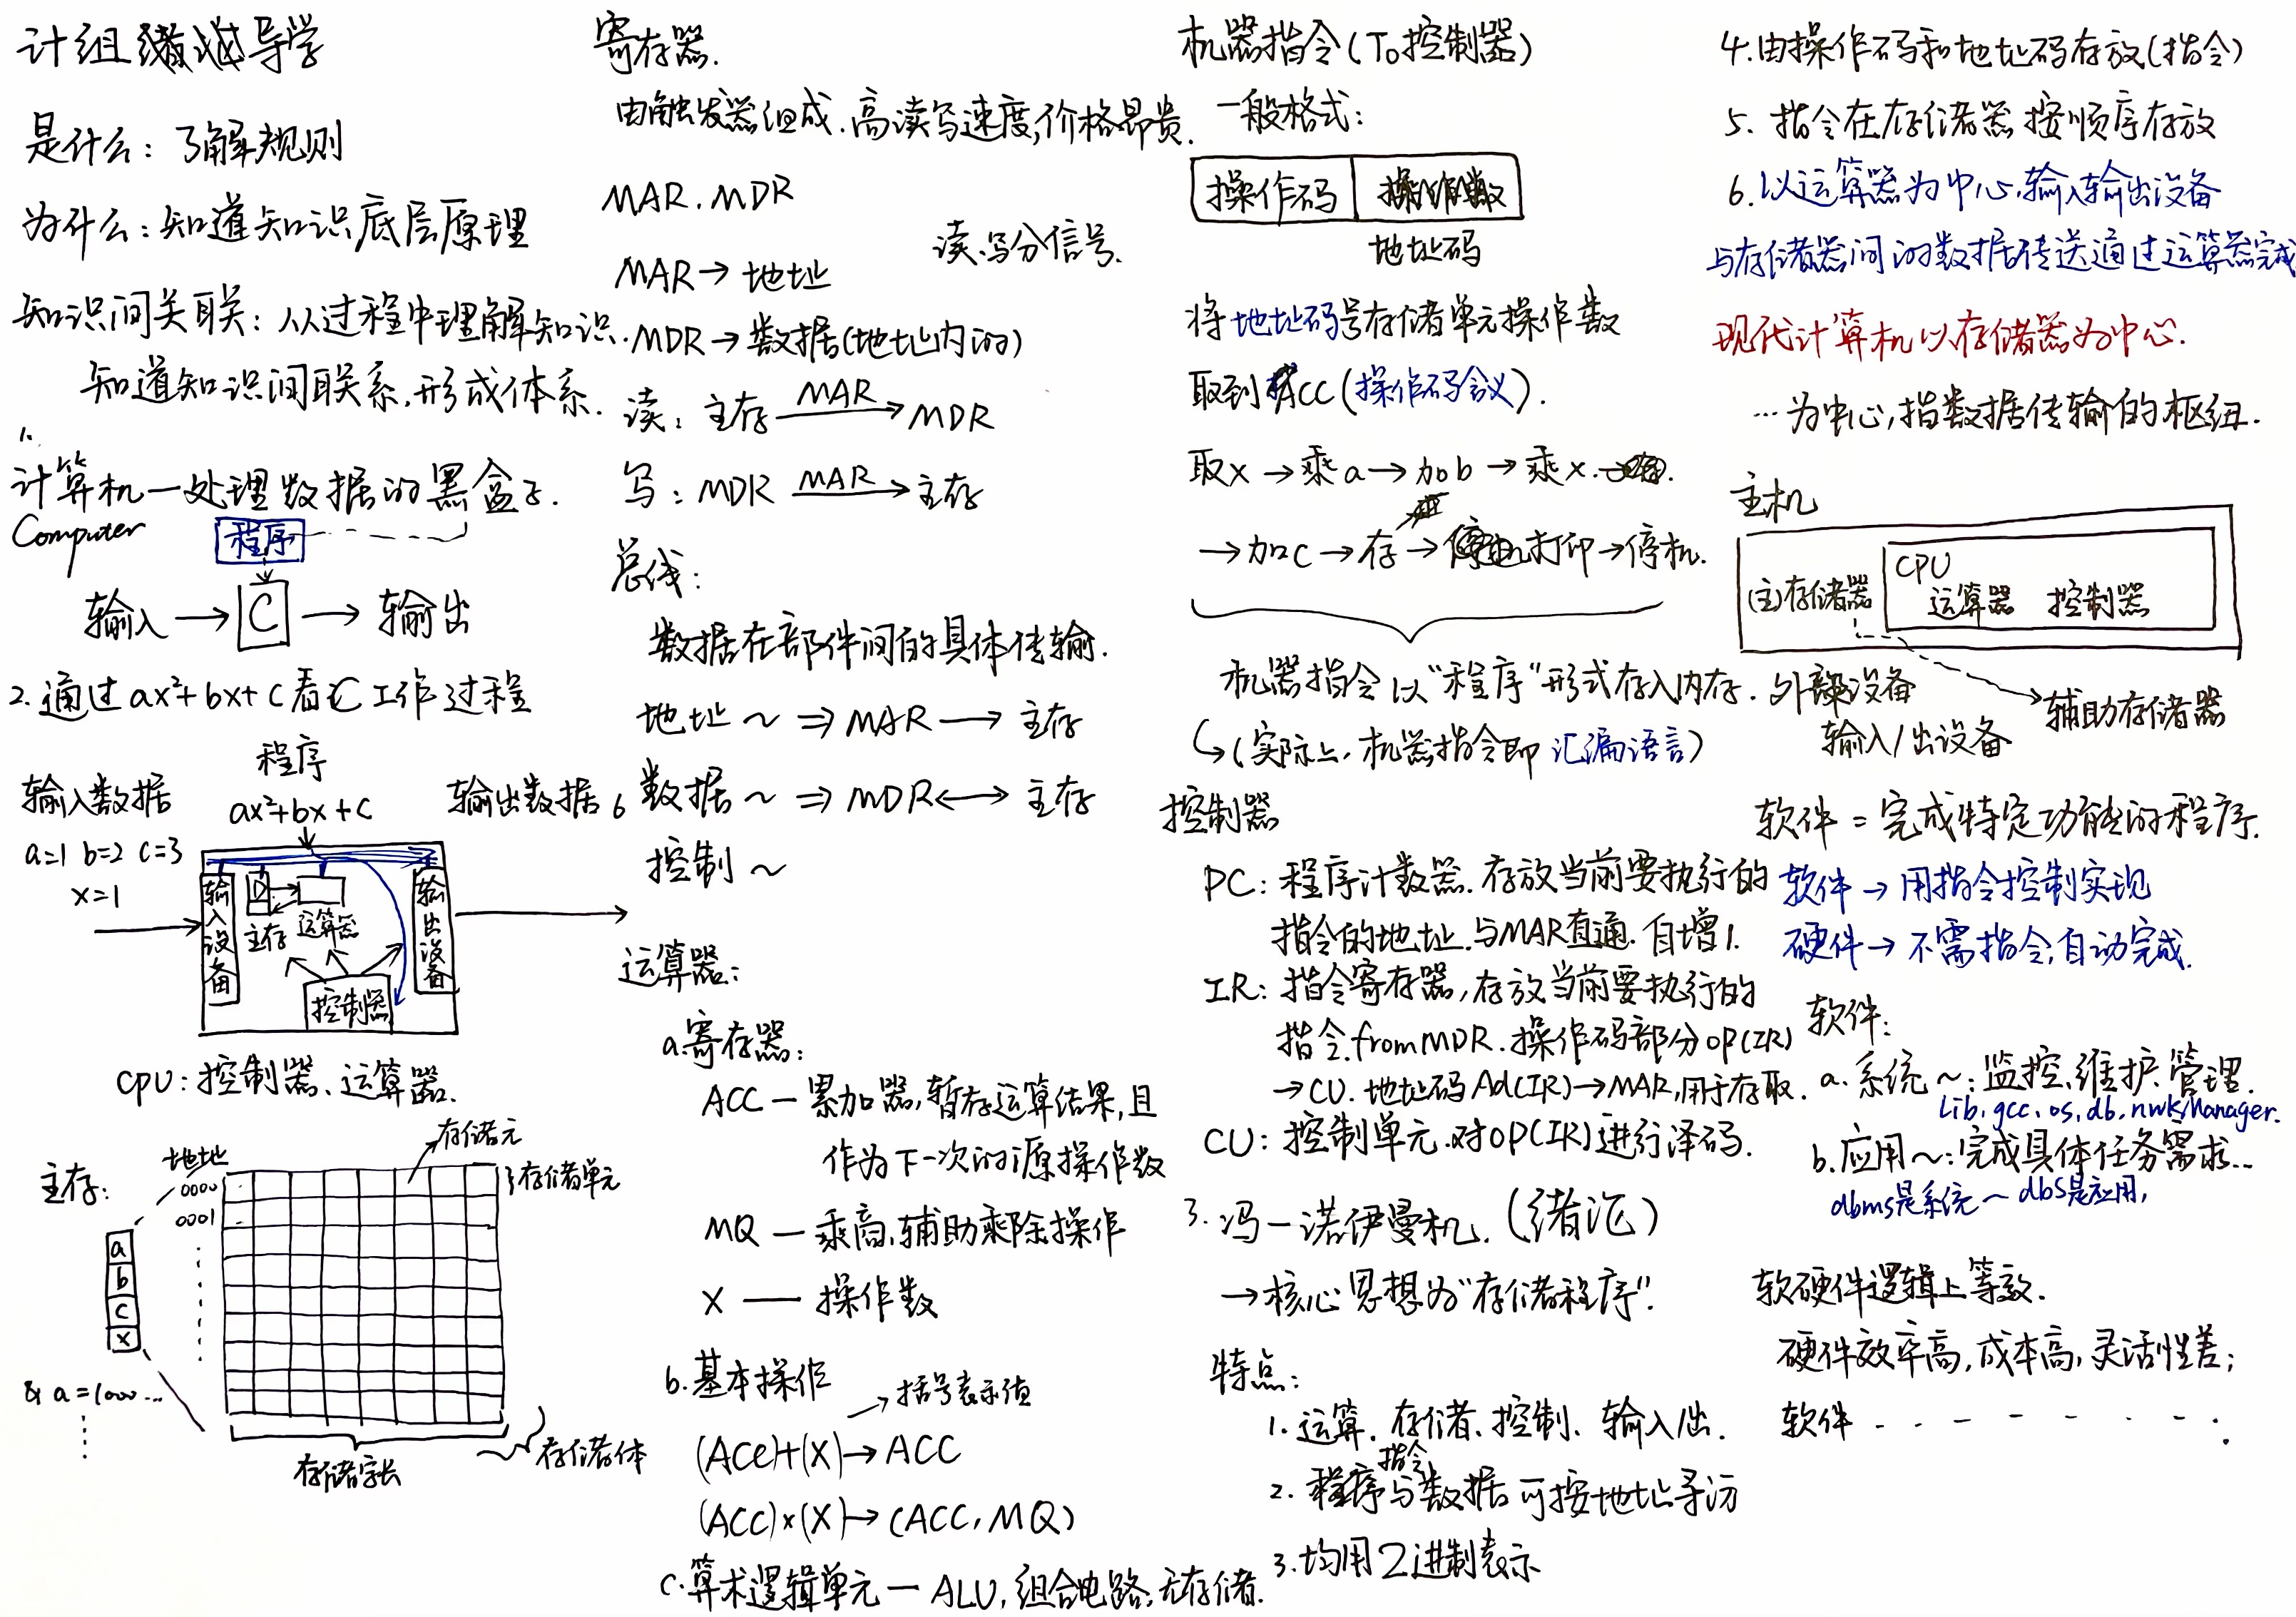 计组导学
是什么：了解规则
为什么：知道知识底层原理
知识间关联：从过程中理解知识.
知道知识间联系,形成体系.
1.
计算机—处理数据的黑盒子.
Computer
程序
输入 → C → 输出
2.通过ax²+bx+c看C工作过程
程序
ax²+bx+c
输入数据
a=1 b=2 c=3
x=1
输出数据 6
输入设备
主存
运算器
输出设备
控制器
CPU:控制器、运算器.
主存:
地址
存储元
0000
存储单元
0001
a
b
c
x
& a = 1000 ...
存储字长
存储体
寄存器.
由触发器组成.高读写速度,价格昂贵.
MAR.MDR
读.写分信号.
MAR→地址
MDR→数据(地址内的)
读：主存 MAR→ MDR
写：MDR MAR→ 主存
总线：
数据在部件间的具体传输.
地址～⇒MAR→主存
数据～⇒MDR↔主存
控制～
运算器：
a.寄存器：
ACC—累加器,暂存运算结果,且
作为下一次的源操作数
MQ—乘商,辅助乘除操作
X—操作数
b.基本操作
→括号表示值
(ACC)+(X)→ACC
(ACC)×(X)→(ACC,MQ)
c.算术逻辑单元—ALU,组合电路,无存储.
机器指令(To控制器)
一般格式：
操作码
地址码
将地址码号存储单元操作数
取到ACC(操作码含义).
取x→乘a→加b→乘x.
→加c→存→打印→停机.
机器指令以“程序”形式存入内存.
↪(实际上,机器指令即汇编语言)
控制器
PC：程序计数器.存放当前要执行的
指令的地址.与MAR直通.自增1.
IR：指令寄存器,存放当前要执行的
指令.from MDR.操作码部分OP(IR)
→CU.地址码Ad(IR)→MAR,用于存取.
CU：控制单元.对OP(IR)进行译码.
3.冯一诺伊曼机.(绪论)
→核心思想为“存储程序”.
特点：
1.运算.存储.控制.输入/出.
指令
2.程序与数据可按地址寻访
3.均用2进制表示
4.由操作码和地址码存放(指令)
5.指令在存储器按顺序存放
6.以运算器为中心.输入输出设备
与存储器间的数据传送通过运算器完成
现代计算机以存储器为中心.
…为中心,指数据传输的枢纽.
主机
(主)存储器
CPU
运算器 控制器
外部设备
输入/出设备
辅助存储器
软件=完成特定功能的程序.
软件→用指令控制实现
硬件→不需指令,自动完成.
软件：
a.系统～：监控,维护.管理.
Lib,gcc,os,db,nwkManager.
b.应用～：完成具体任务需求...
dbms是系统～ dbs是应用,
软硬件逻辑上等效.
硬件效率高,成本高,灵活性差;
软件 - - - - - - - .